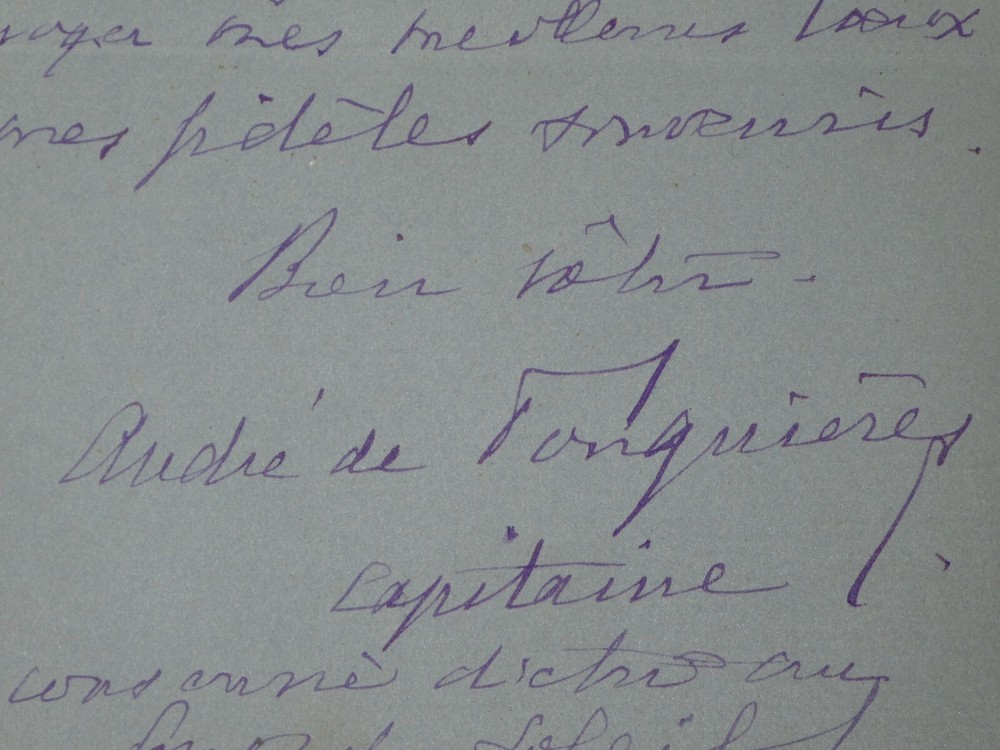 mes meilleurs vœux
mes fidèles souvenirs.
Bien vôtre -
André de Fouquières
Capitaine
d'être au
Soleil